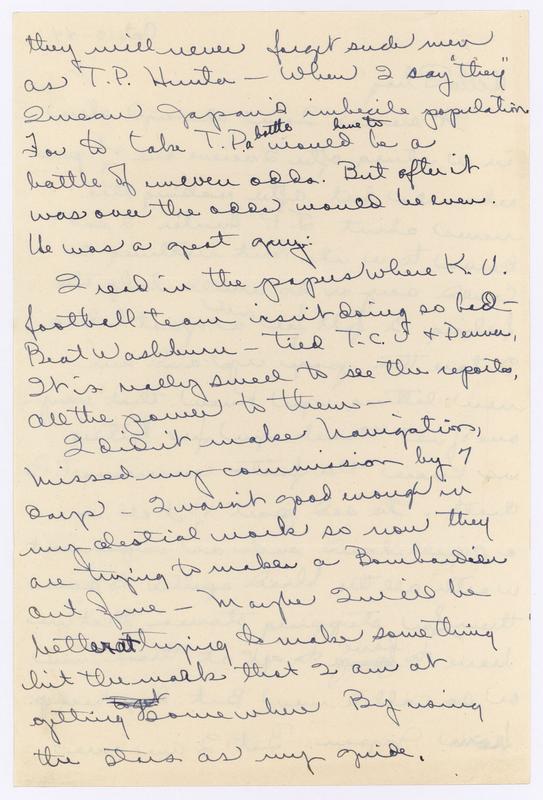 they will never forget such men
as T.P. Hunter — When I say "they"
I mean Japan's imbecile population
For to take T.P. a battle would have to be a
battle of uneven odds. But after it
was over the odds would be even.
He was a great guy.
I read in the papers where K.U.
football team isn't doing so bad —
Beat Washburn — tied T.C.U & Denver,
It is really swell to see the reports,
all the power to them —
I didn't make Navigation,
Missed my commission by 7
days — I wasn't good enough in
my celestial work so now they
are trying to make a Bombardier
out of me — Maybe I will be
better at trying to make something
hit the mark that I am at
getting somewhere By using
the stars as my guide.